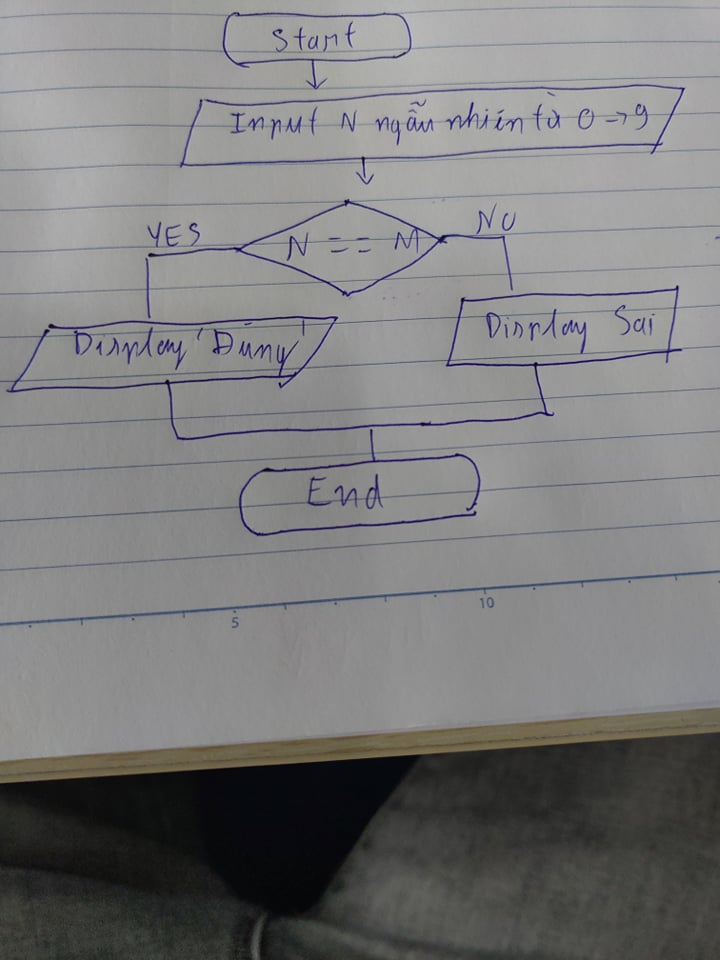 Start
Input N ngẫu nhiên từ 0 → 9
N == M
YES
NO
Display 'Đúng'
Display Sai
End
5
10